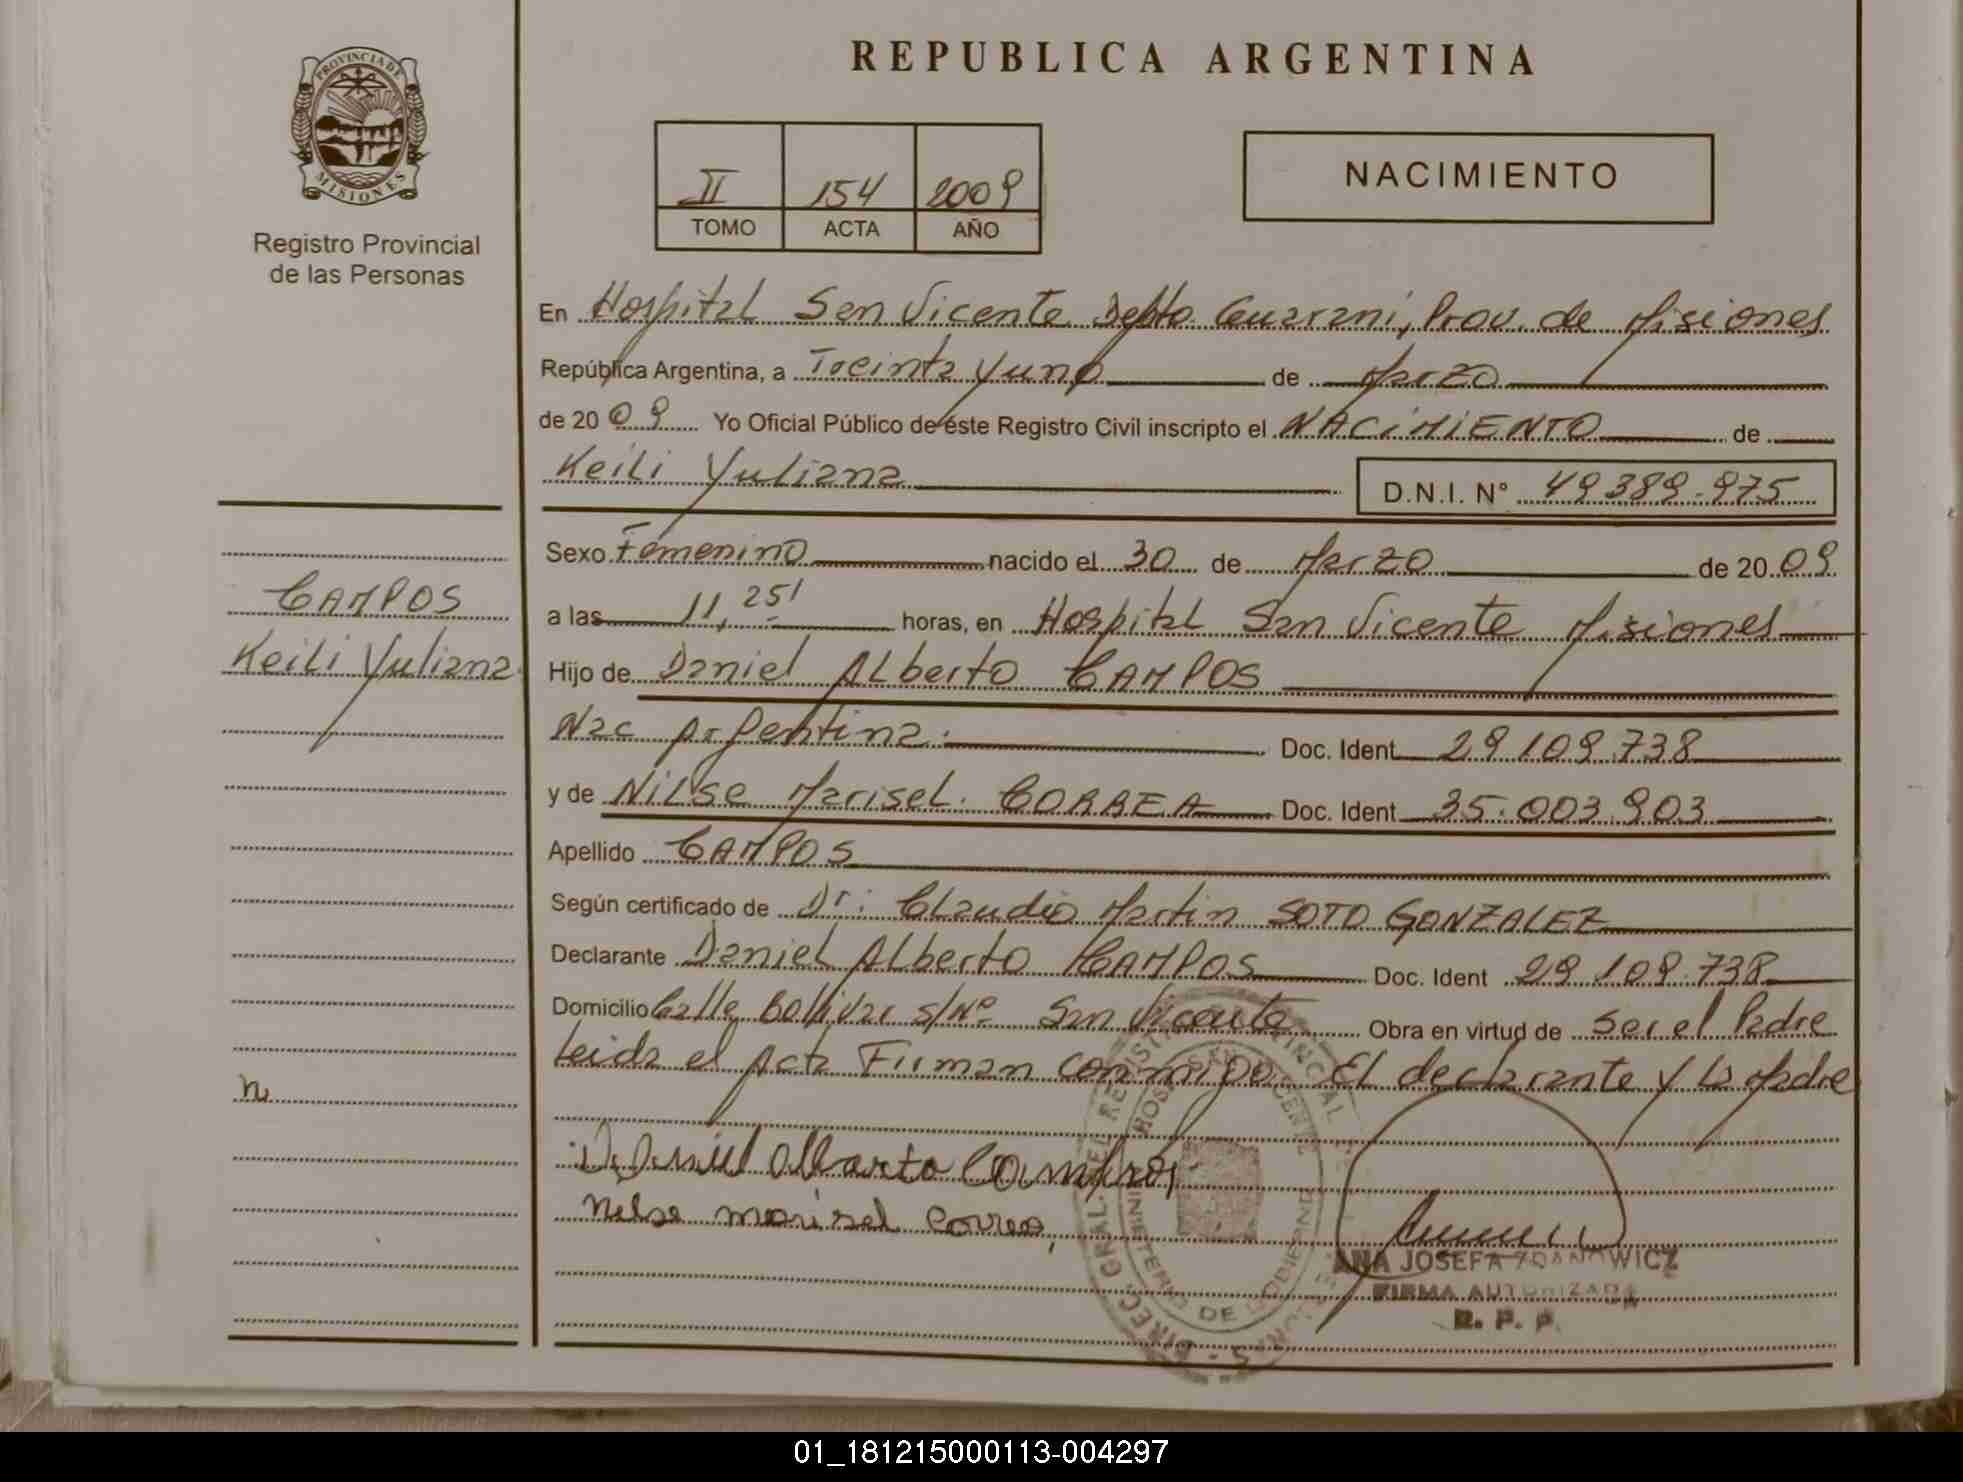 REPUBLICA ARGENTINA
PROVINCIA DE
MISIONES
Registro Provincial
de las Personas
II 154 2009
TOMO ACTA AÑO
NACIMIENTO
En Hospital San Vicente Depto. Guarani, Prov. de Misiones
República Argentina, a Treinta y uno de Marzo
de 2009 Yo Oficial Público de éste Registro Civil inscripto el NACIMIENTO de
Keili Yuliana D.N.I. N° 49389.975
Sexo Femenino nacido el 30 de Marzo de 2009
a las 11,25' horas, en Hospital San Vicente Misiones
Hijo de Daniel Alberto CAMPOS
Nac Argentina. Doc. Ident 29.109.738
y de Nilse Marisel. CORREA Doc. Ident 35.003.903
Apellido CAMPOS
Según certificado de Dr: Claudio Martin SOTO GONZALEZ
Declarante Daniel Alberto CAMPOS Doc. Ident 29.109.738
Domicilio Calle Bolivar s/Nº San Vicente Obra en virtud de Ser el Padre
Leida el Acta Firman conmigo. El declarante y la Madre
CAMPOS
Keili Yuliana
n
Daniel Alberto Campos
Nilse marisel Correa
DIREC. GRAL. DEL REGISTRO PROVINCIAL
MINISTERIO DE GOBIERNO
HOSP. SAN VICENTE
ANA JOSEFA ZDANOWICZ
FIRMA AUTORIZADA
R. P. P.
01_181215000113-004297